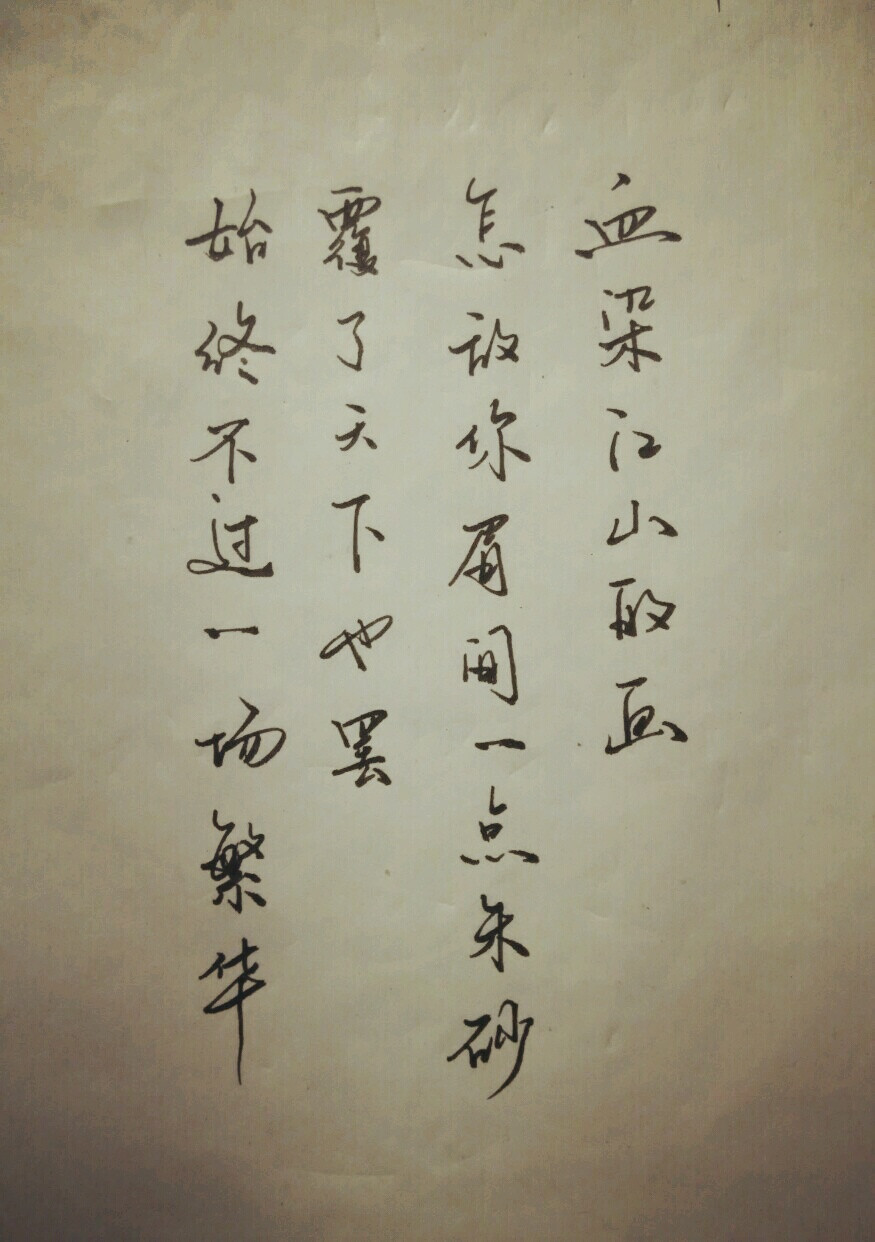 血染江山敢画
怎敌你眉间一点朱砂
覆了天下也罢
始终不过一场繁华